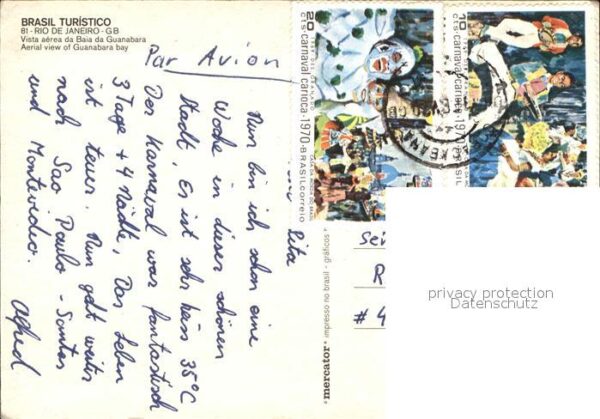 BRASIL TURÍSTICO
81 - RIO DE JANEIRO - GB
Vista aérea da Baía da Guanabara
Aerial view of Guanabara bay
Par Avion
Rita
Nun bin ich schon eine
Woche in dieser schönen
Stadt. Es ist sehr heiss 35°C
Der Karneval war fantastisch
3 Tage + 4 Nächte, Das Leben
ist teuer. Nun geht weiter
nach Sao Paulo - Santos
und Montevideo.
Alfred
mercator® impresso no brasil - gráficos
20 cts carnaval carioca · 1970
BRASIL correio
10 cts carnaval carioca · 1970
BRASIL
R
# 4
privacy protection
Datenschutz